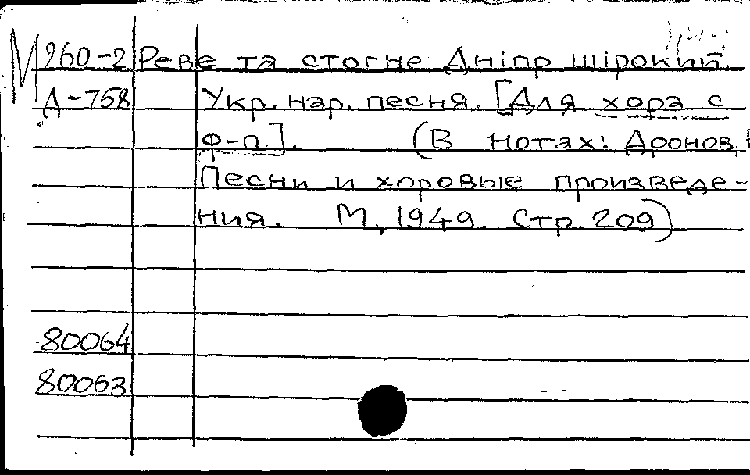 М 260-2 Реве та стогне Дніпр широкий.
Д-758 Укр. нар. песня. [Для хора с
ф-п.]. (В нотах: Дронов
Песни и хоровые произведе-
ния. М., 1949. Стр. 209)
80064
80063